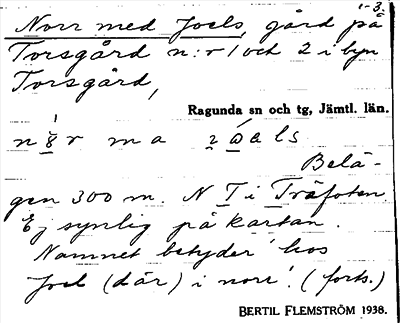 1-3.
Norr med Joels, gård på
Torsgård n:r 1 och 2 i byn
Torsgård,
Ragunda sn och tg, Jämtl. län.
ma
Belä-
gen 300 m. N T i Träfoten
Ej synlig på kartan.
Namnet betyder 'hos
Joel (där) i norr'. (forts.)
BERTIL FLEMSTRÖM 1938.